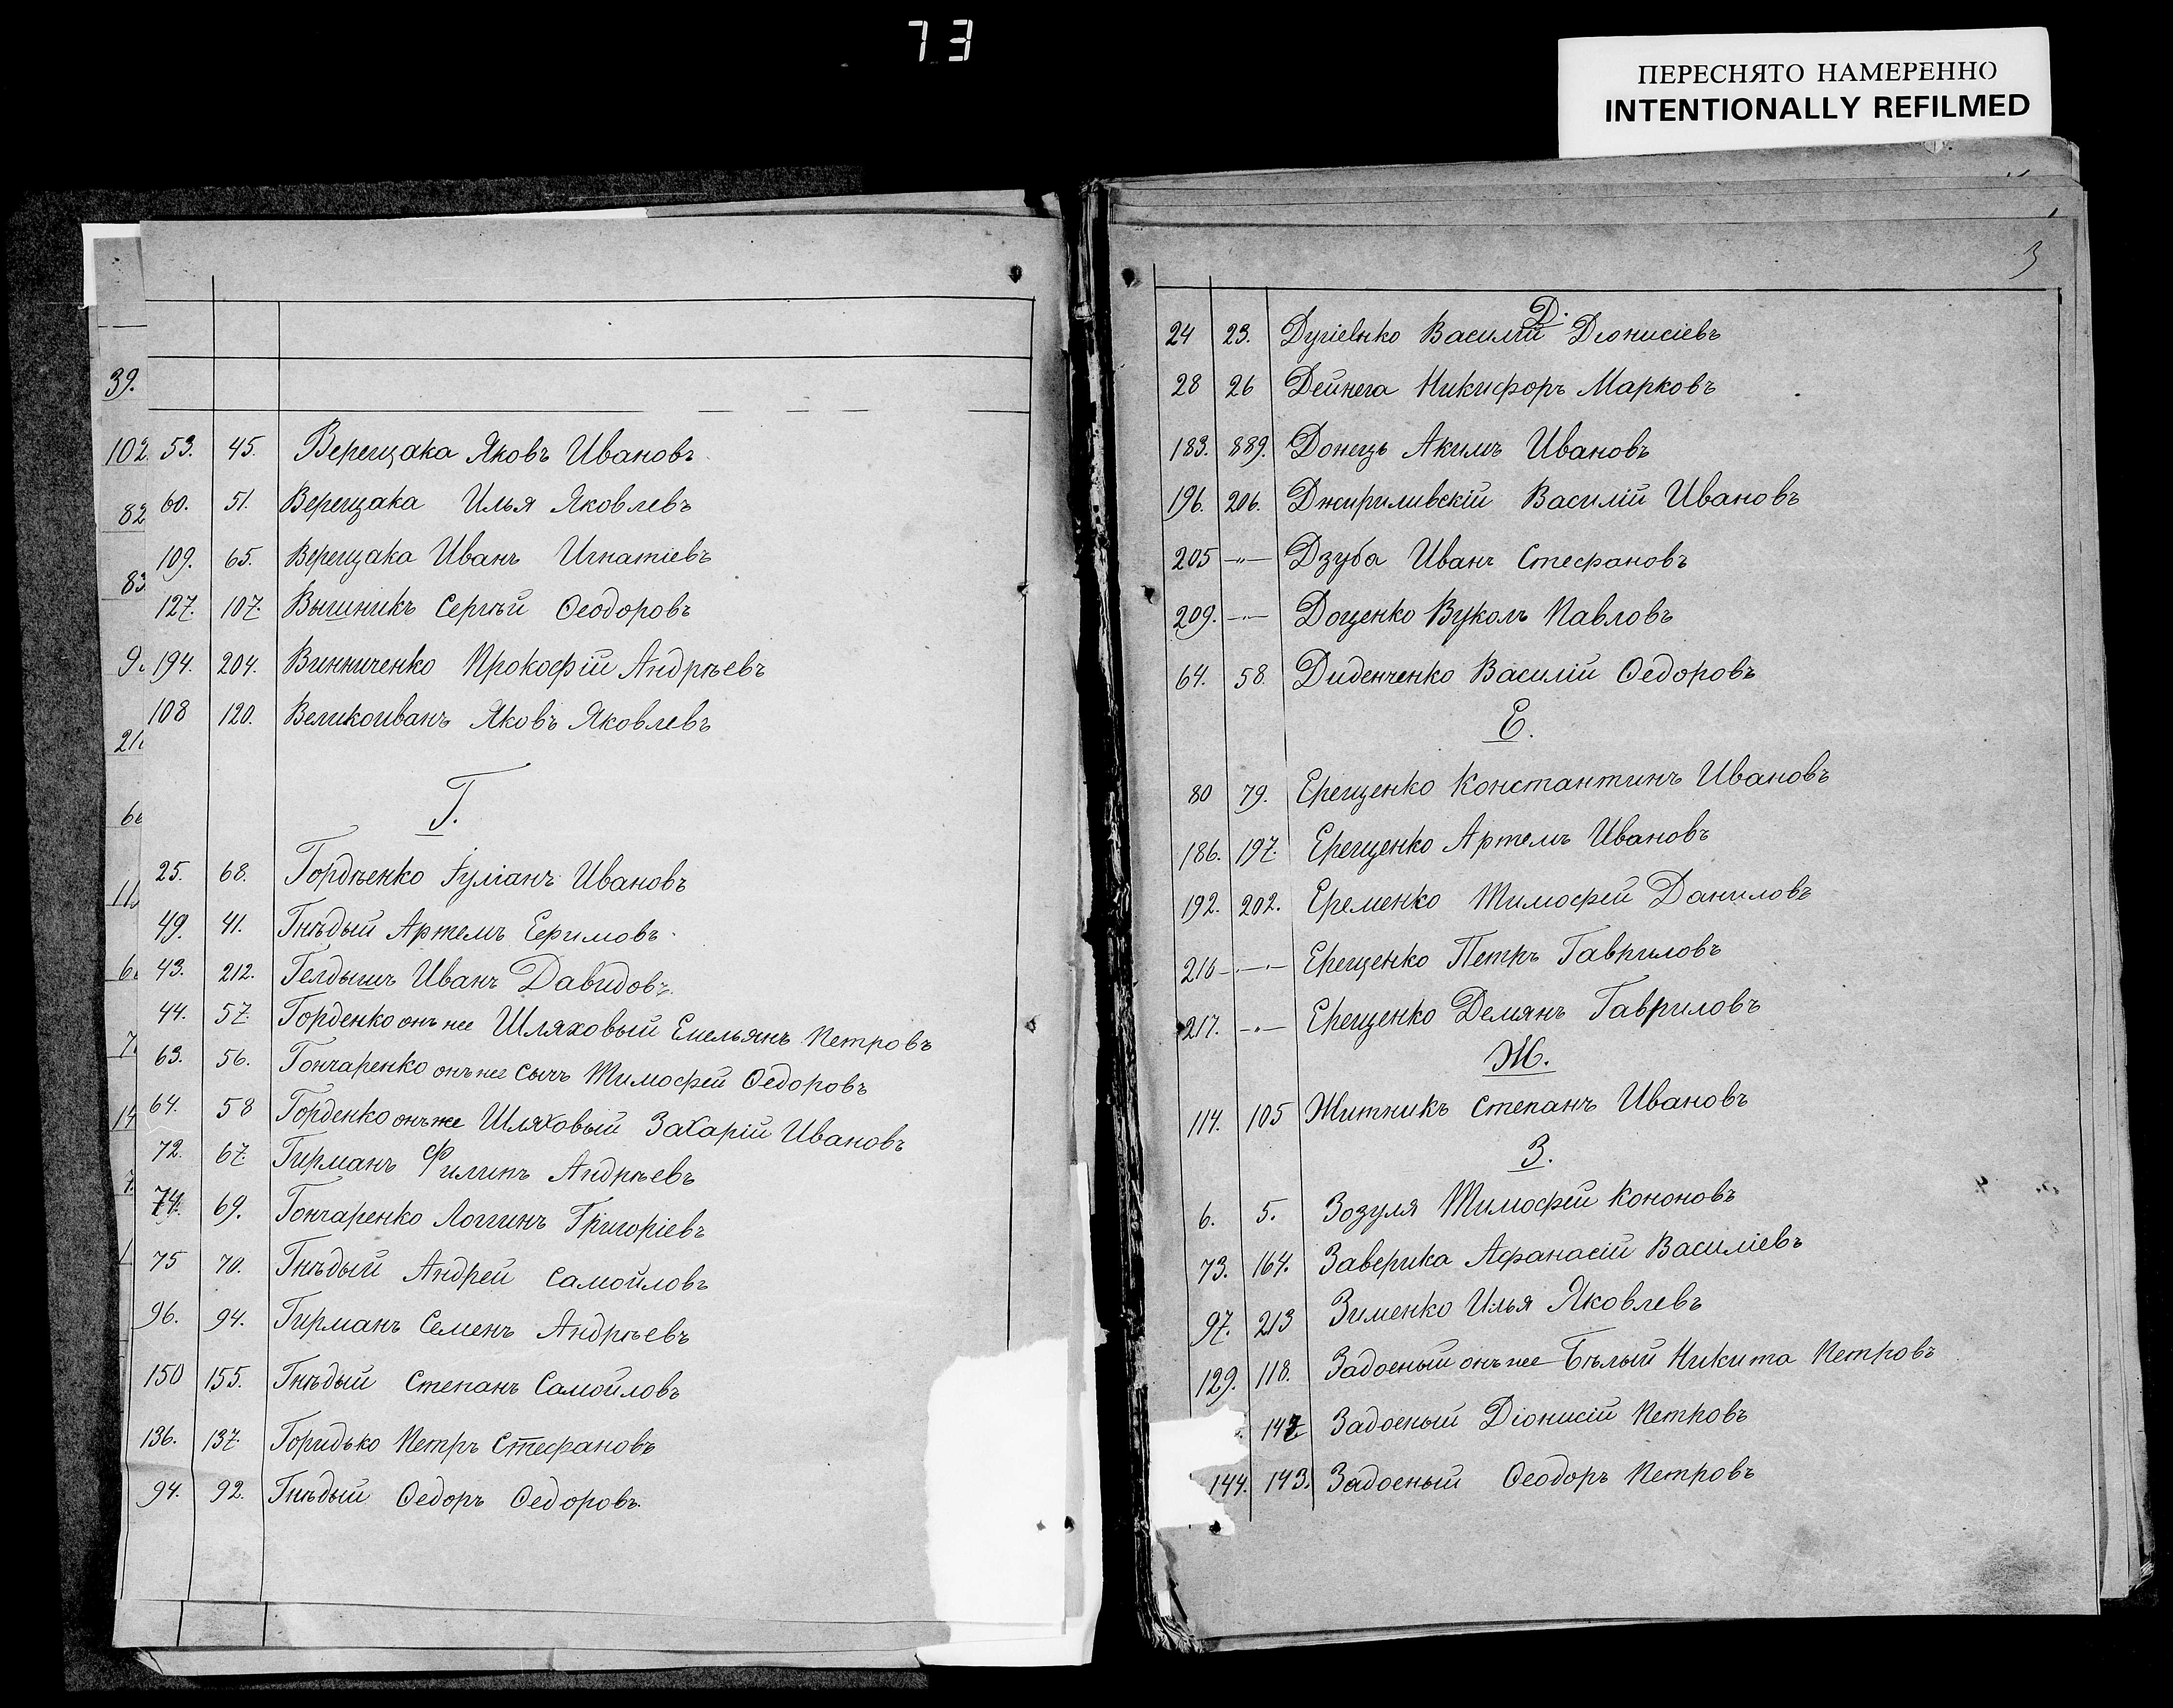 73
ПЕРЕСНЯТО НАМЕРЕННО
INTENTIONALLY REFILMED
39.
102.
82
83
53. 45. Верещака Яковъ Ивановъ.
60. 51. Верещака Илья Яковлевъ
109. 65. Верещака Иванъ Игнатіевъ
127. 107. Вышникъ Сергѣй Ѳеодоровъ
194. 204. Винниченко Прокофій Андрѣевъ
108 120. Великоиванъ Яковъ Яковлевъ
Г.
25. 68. Гордѣенко Іуліанъ Ивановъ
49. 41. Гнѣдый Артемъ Ефимовъ.
43. 212. Гелдышъ Иванъ Давидовъ.
44. 57. Горденко онъ же Шляховый Емельянъ Петровъ
63. 56. Гончаренко онъ же Сычъ Тимофей Ѳедоровъ
64. 58 Горденко онъ же Шляховый Захарій Ивановъ
72. 67. Гирманъ Филипъ Андрѣевъ
74. 69. Гончаренко Логгинъ Григоріевъ
75 70. Гнѣдый Андрей Самойловъ
96. 94. Гирманъ Семенъ Андрѣевъ
150 155. Гнѣдый Степанъ Самойловъ
136. 137. Горидько Петръ Стефановъ
94. 92. Гнѣдый Ѳедоръ Ѳедоровъ.
3
Д.
24 23. Василій Діонисіевъ
28 26 Дейнега Никифоръ Марковъ
183. 889. Донецъ Акимъ Ивановъ
196. 206. Джириливскій Василій Ивановъ
205 -"- Дзуба Иванъ Стефановъ
209. -"- Доценко Вуколъ Павловъ
64. 58. Диденченко Василій Ѳедоровъ
Е.
80 79. Ерещенко Константинъ Ивановъ
186. 197. Ерещенко Артемъ Ивановъ
192. 202. Еременко Тимофей Даниловъ
216 -"- Ерещенко Петръ Гавриловъ
217. -"- Ерещенко Демянъ Гавриловъ
Ж.
114. 105 Житникъ Степанъ Ивановъ
З.
6. 5. Зозуля Тимофей Кононовъ
73. 164. Заверика Афанасій Василіевъ
97. 213 Зименко Илья Яковлевъ
129. 118. Задоеный онъ же Бѣлый Никита Петровъ
Задоеный Діонисій Петровъ
144. 143. Задоеный Ѳеодоръ Петровъ